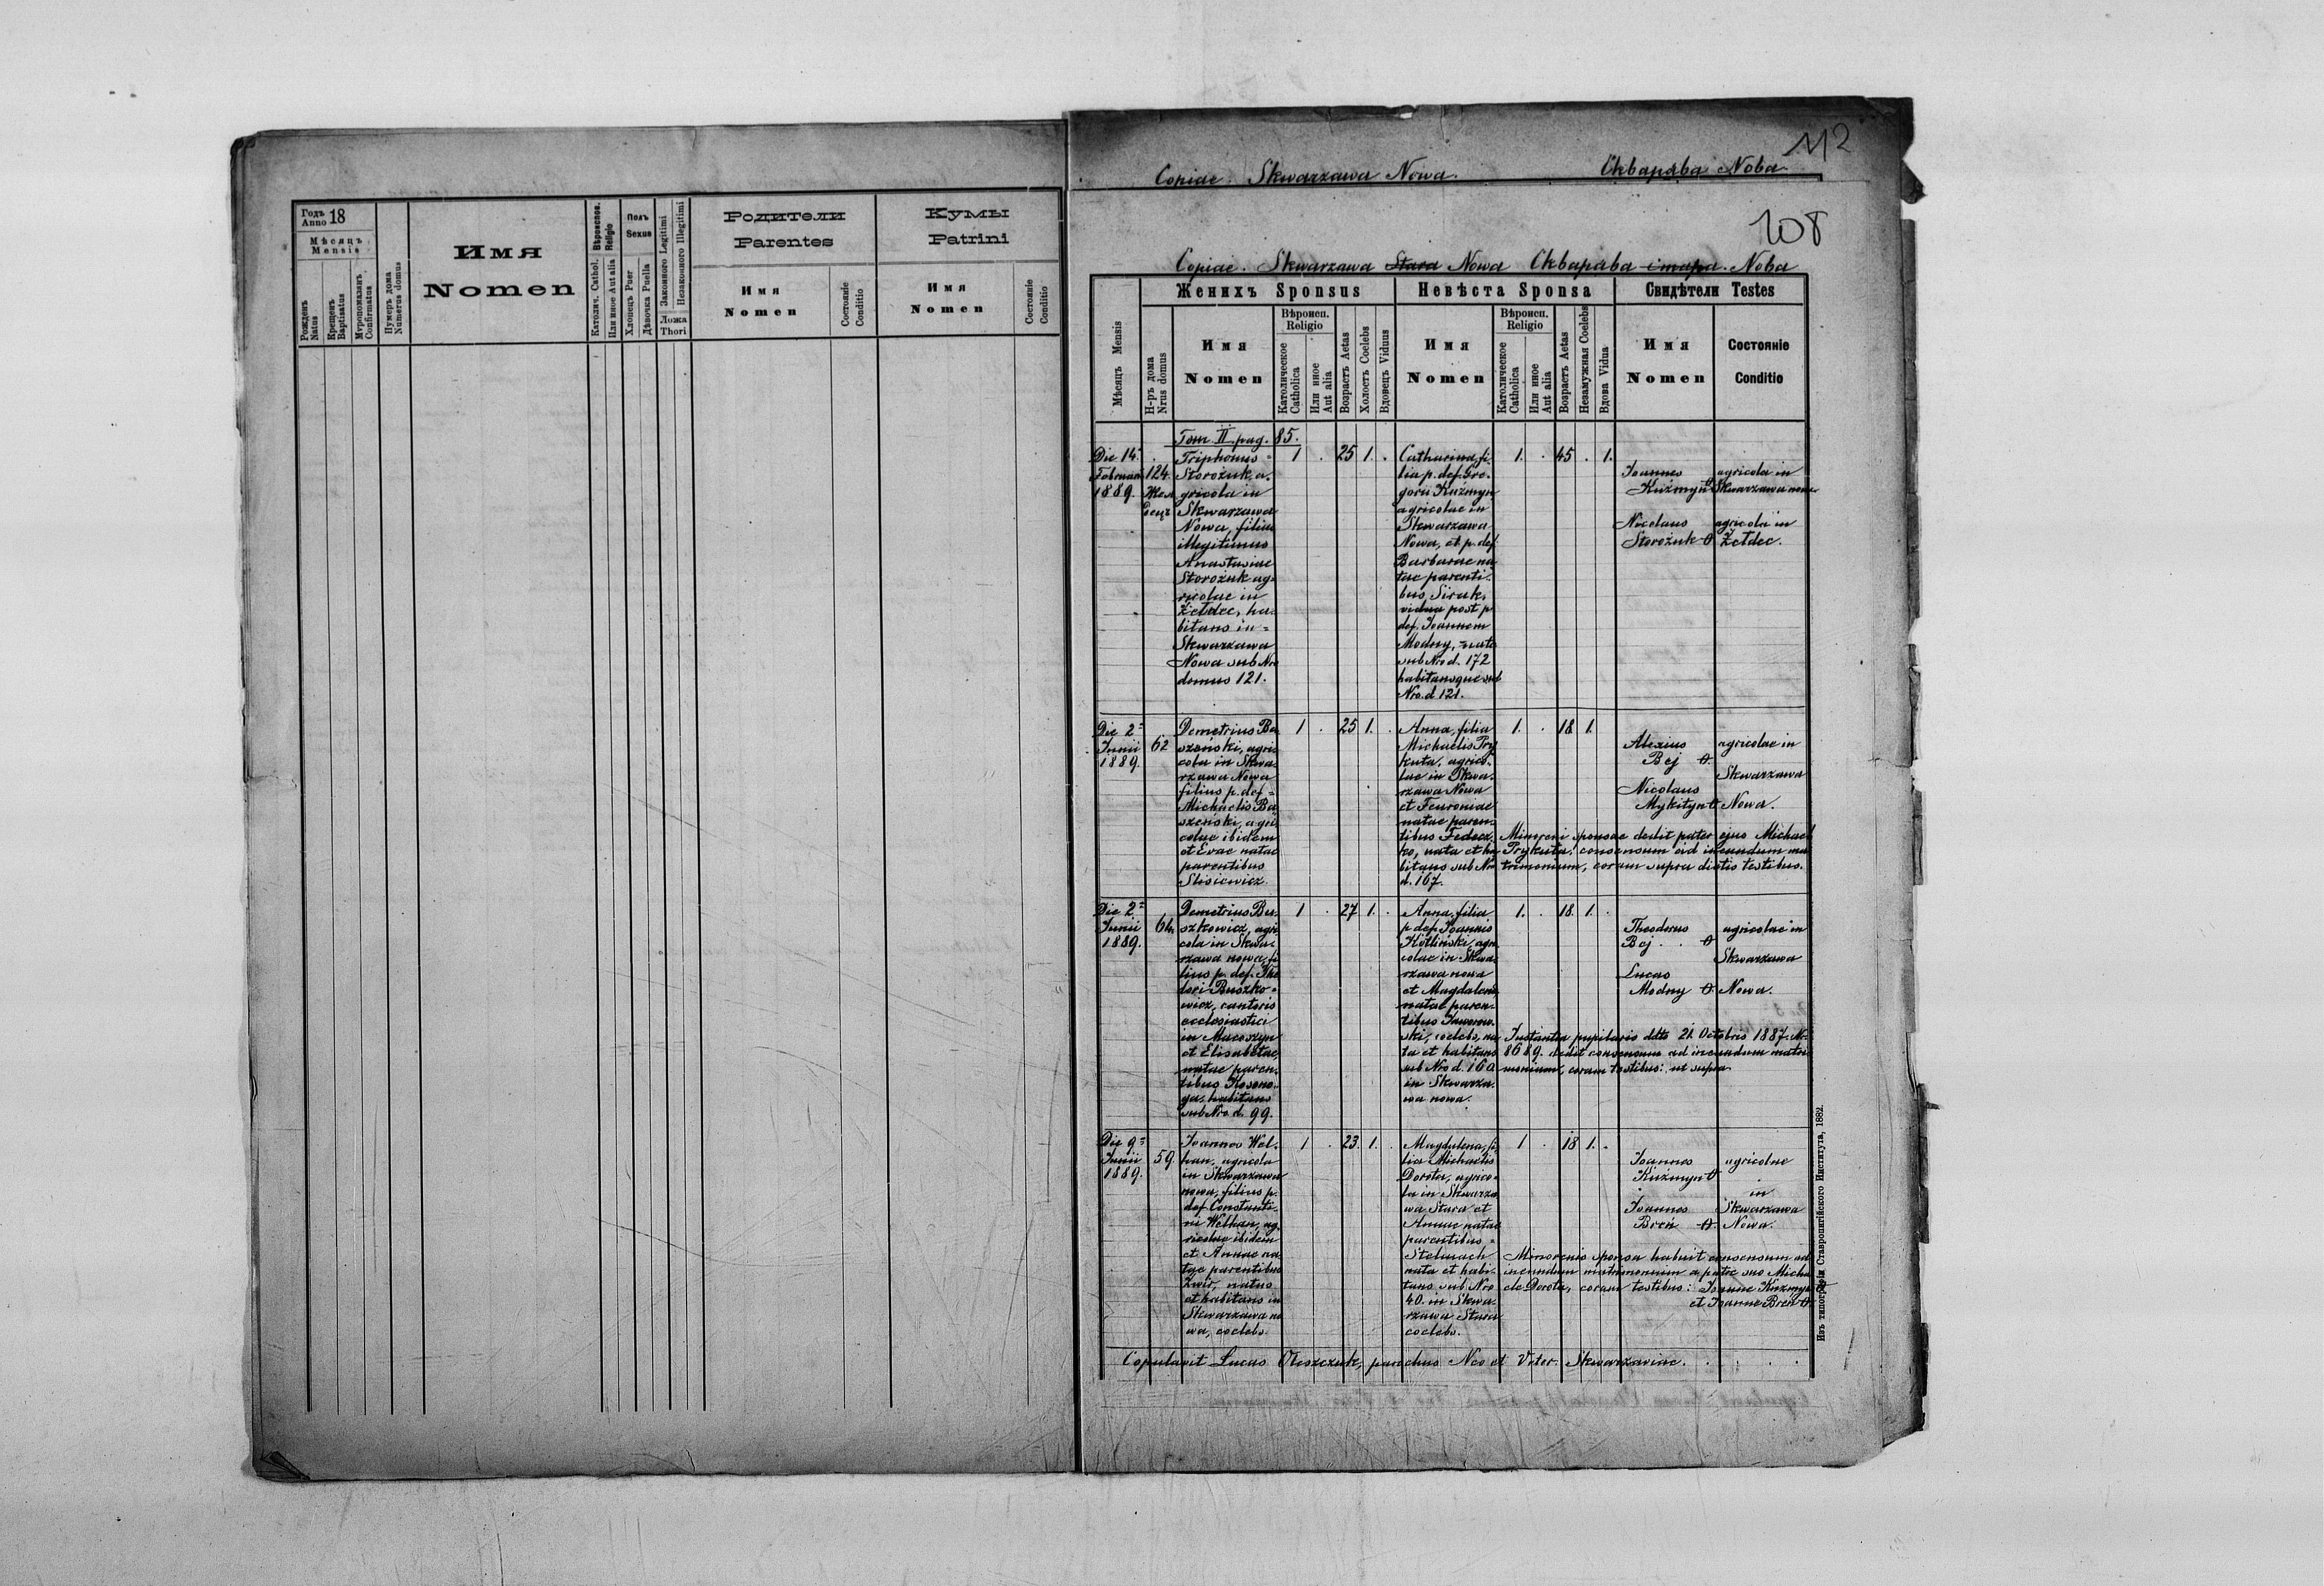 112
Copiae. Skwarzawa Nowa. Скварява Нова.
108
Copiae. Skwarzawa Stara Nowa Скварява стара. Нова
Годъ Anno 18
Мѣсяцъ Mensis
Рожденъ Natus
Крещенъ Baptisatus
Мѵропомазанъ Confirmatus
Нумеръ дома Numerus domus
Имя
Nomen
Вѣроиспов. Religio
Католич. Cathol.
Или иное Aut alia
Полъ Sexus
Хлопецъ Puer
Дѣвочка Puella
Законного Legitimi
Незаконного Illegitimi
Ложа Thori
Родители
Parentes
Имя
Nomen
Состояніе
Conditio
Кумы
Patrini
Имя
Nomen
Состояніе
Conditio
Мѣсяцъ Mensis
Н-ръ дома Nrus domus
Женихъ Sponsus
Имя
Nomen
Вѣроисп. Religio
Католическое Catholica
Или иное Aut alia
Возрастъ Aetas
Холостъ Coelebs
Вдовецъ Viduus
Невѣста Sponsa
Имя
Nomen
Вѣроисп. Religio
Католическое Catholica
Или иное Aut alia
Возрастъ Aetas
Незамужная Coelebs
Вдова Vidua
Свидѣтели Testes
Имя
Nomen
Состояніе
Conditio
Tom II. pag. 85.
Die 14.
Februarii
1889.
124
Triphonus
Storożuk, a-
gricola in
Skwarzawa
Nowa, filius
illegitimus
Anastasiae
Storożuk ag-
ricolae in
Żełdec, ha-
bitans in
Skwarzawa
Nowa sub Nro
domus 121.
1 . 25 1. .
Catharina, fi-
lia p. def. Gre-
gorii Kuźmyn
agricolae in
Skwarzawa
Nowa, et p. def
Barbarae na-
tae parenti-
bus Siruk,
vidua post p.
def. Joannem
Modny, nata
sub Nro d. 172
habitansque sub
Nro. d 121.
1. . 45 . 1.
Joannes
Kuźmyn
agricola in
Skwarzawa nowa
Nicolaus
Storożuk
agricola in
Żełdec.
Die 2
Junii
1889.
62
Demetrius Ba-
szeński, agri-
cola in Skwa-
rzawa Nowa
filius p. def
Michaelis Ba-
szeński, agri-
colae ibidem
et Evae natae
parentibus
Slisiewicz.
1 . 25 1. .
Anna, filia
Michaelis Pry-
kuta, agrico-
lae in Skwa-
rzawa Nowa
et Feuroniae
natae paren-
tibus Fedecz-
ko, nata et ha-
bitans sub Nro
d. 167.
1. . 18 1.
Alexius
Bej
Nicolaus
Mykityn
agricolae in
Skwarzawa
Nowa.
Minoreni sponsae dedit pater ejus Michael
Prykuta, consensum ad ineundum ma-
trimonium, coram supra dictis testibus.
Die 2
Junii
1889.
64.
Demetrius Bu-
szkowicz, agri-
cola in Skwa-
rzawa nowa, fi-
lius p. def. The-
dori Buszko-
wicz, cantoris
ecclesiastici
in Macoszyn
et Elisabetae,
natae paren-
tibus Kosono-
ga, habitans
sub Nro d. 99.
1 . 27 1. .
Anna, filia
p. def. Joannis
Kotliński agri-
colae in Skwa-
rzawa nowa
et Magdalenae
natae paren-
tibus Jaworow-
ski, coelebs, na-
ta et habitans
sub Nro d. 160
in Skwarza-
wa nowa.
1. . 18. 1. .
Theodorus
Bej
Lucas
Modny
agricolae in
Skwarzawa
Nowa.
Instantia pupilaris ddto 21 Octobris 1887. Nr.
8689. dedit consensum ad ineundum matri-
monium, coram testibus: ut supra
Die 9
Junii
1889.
59.
Joannes Wel-
han, agricola
in Skwarzawa
nowa, filius p.
def Constanti-
ni Welhan, ag-
ricolae ibidem
et Annae na-
tae parentibus
Żwir, natus
et habitans in
Skwarzawa no-
wa, coelebs.
1 . 23 1. .
Magdalena, fi-
lia Michaelis
Dorota, agrico-
la in Skwarza-
wa Stara et
Annae natae
parentibus
Stelmach
nata et habi-
tans sub Nro
40. in Skwa-
rzawa Stara
coelebs.
1 . 18 1. .
Joannes
Kuźmyn
Joannes
Breń
agricolae
in
Skwarzawa
Nowa.
Minorenis sponsa habuit consensum ad
ineundum matrimonium a patre suo Micha-
ele Dorota, coram testibus: Joanne Kuźmyn
et Joanne Breń
Copulavit Lucas Oleszczuk, parochus Neo et Veter. Skwarzaviae.
Изъ типографіи Ставропигійского Института, 1882.